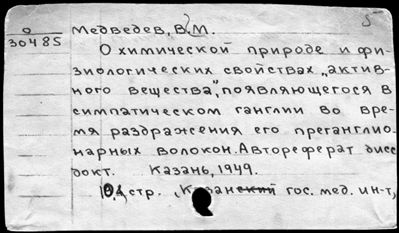 5
О
30485
Медведев, В.М.
О химической природе и фи-
зиологических свойствах "актив-
ного вещества", появляющегося в
симпатическом ганглии во вре-
мя раздражения его преганглио-
нарных волокон. Автореферат дисс
докт. Казань, 1949.
стр. (Казанский гос. мед. ин-т,